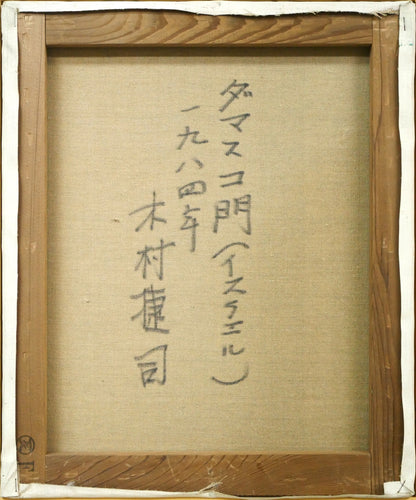 ダマスコ門(イスラエル)
一九八四年
木村捷司